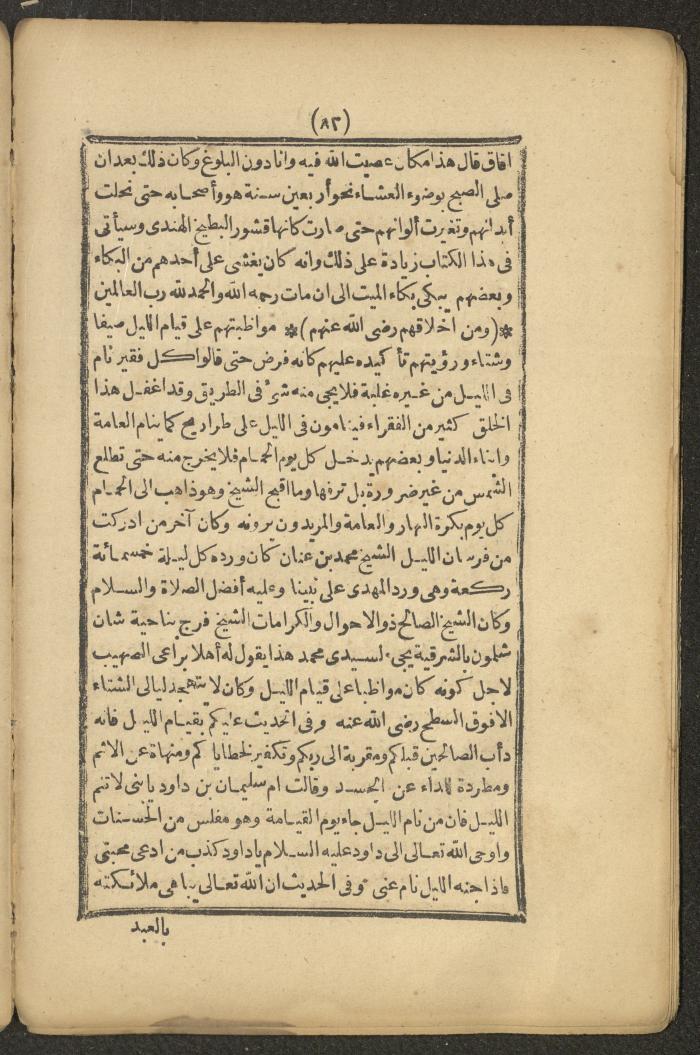 (٨٢)
افاق قال هذا مكان عصيت الله فيه وانا دون البلوغ وكان ذلك بعد ان
صلى الصبح بوضوء العشاء نحو أربعين سنة هو وأصحابه حتى نحلت
أبدانهم وتغيرت ألوانهم حتى صارت كانها قشور البطيخ الهندى وسيأتى
فى هذا الكتاب زيادة على ذلك وانه كان يغشى على أحدهم من البكاء
وبعضهم يبكى بكاء الميت الى ان مات رحمه الله والحمد لله رب العالمين
*(ومن اخلاقهم رضى الله عنهم)* مواظبتهم على قيام الليل صيفا
وشتاء ورؤيتهم تأكيده عليهم كانه فرض حتى قالوا كل فقير نام
فى الليل من غير غلبة فلا يجى منه شئ فى الطريق وقد اغفل هذا
الخلق كثير من الفقراء فينامون فى الليل على طراريح كما ينام العامة
وابناء الدنيا وبعضهم يدخل كل يوم الحمام فلا يخرج منه حتى تطلع
الشمس من غير ضرورة بل ترفها وما اقبح الشيخ وهو ذاهب الى الحمام
كل يوم بكرة النهار والعامة والمريدون يرونه وكان آخر من ادركت
من فرسان الليل الشيخ محمد بن عنان كان ورده كل ليلة خمسمائة
ركعة وهى ورد المهدى على نبينا وعليه أفضل الصلاة والسلام
وكان الشيخ الصالح ذو الاحوال والكرامات الشيخ فرج بناحية شان
شلمون بالشرقية يجىء لسيدى محمد هذا يقول له أهلا براعى الصهيب
لاجل كونه كان مواظبا على قيام الليل وكان لا يتهجد ليالى الشتاء
الا فوق السطح رضى الله عنه وفى الحديث عليكم بقيام الليل فانه
دأب الصالحين قبلكم ومقربة الى ربكم وتكفير لخطاياكم ومنهاة عن الاثم
ومطردة للداء عن الجسد وقالت ام سليمان بن داود يا بنى لا تنم
الليل فان من نام الليل جاء يوم القيامة وهو مفلس من الحسنات
واوحى الله تعالى الى داود عليه السلام يا داود كذب من ادعى محبتى
فاذا جنه الليل نام عنى وفى الحديث ان الله تعالى يباهى ملائكته
بالعبد